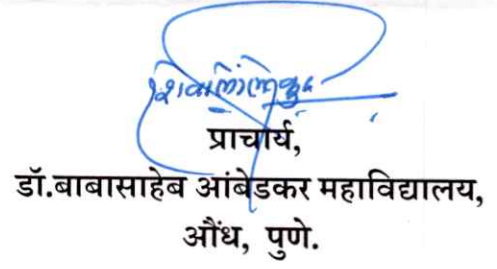 प्राचार्य,
डॉ.बाबासाहेब आंबेडकर महाविद्यालय,
औंध, पुणे.